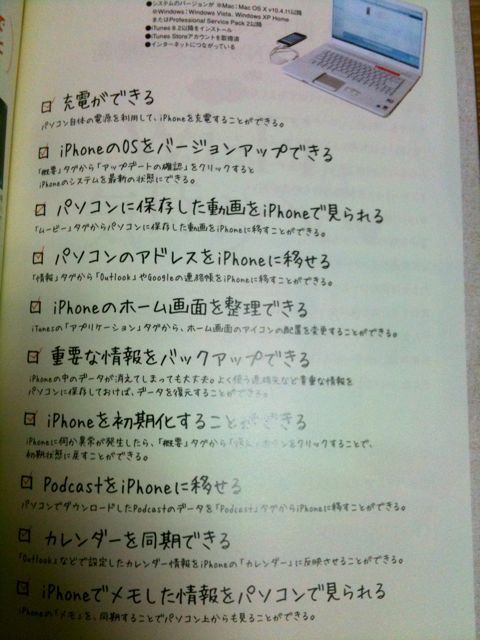 ●システムのバージョンが ※Mac:Mac OS X v10.4.11以降
※Windows:Windows Vista、Windows XP Home
またはProfessional Service Pack 2以降
●iTunes 8.2以降をインストール
●iTunes Storeアカウントを取得済
●インターネットにつながっている
充電ができる
パソコン自体の電源を利用して、iPhoneを充電することができる。
iPhoneのOSをバージョンアップできる
「概要」タグから「アップデートの確認」をクリックすると
iPhoneのシステムを最新の状態にできる。
パソコンに保存した動画をiPhoneで見られる
「ムービー」タグからパソコンに保存した動画をiPhoneに移すことができる。
パソコンのアドレスをiPhoneに移せる
「情報」タグから「Outlook」やGoogleの連絡帳をiPhoneに移すことができる。
iPhoneのホーム画面を整理できる
iTunesの「アプリケーション」タグから、ホーム画面のアイコンの配置を変更することができる。
重要な情報をバックアップできる
iPhoneの中のデータが消えてしまっても大丈夫。よく使う連絡先など貴重な情報を
パソコンに保存しておけば、データを復元することができる。
iPhoneを初期化することができる
iPhoneに何か異常が発生したら、「概要」タグから「復元」ボタンをクリックすることで、
初期状態に戻すことができる。
PodcastをiPhoneに移せる
パソコンでダウンロードしたPodcastのデータを「Podcast」タグからiPhoneに移すことができる。
カレンダーを同期できる
「Outlook」などで設定したカレンダー情報をiPhoneの「カレンダー」に反映させることができる。
iPhoneでメモした情報をパソコンで見られる
iPhoneの「メモ」を、同期することでパソコン上からも見ることができる。